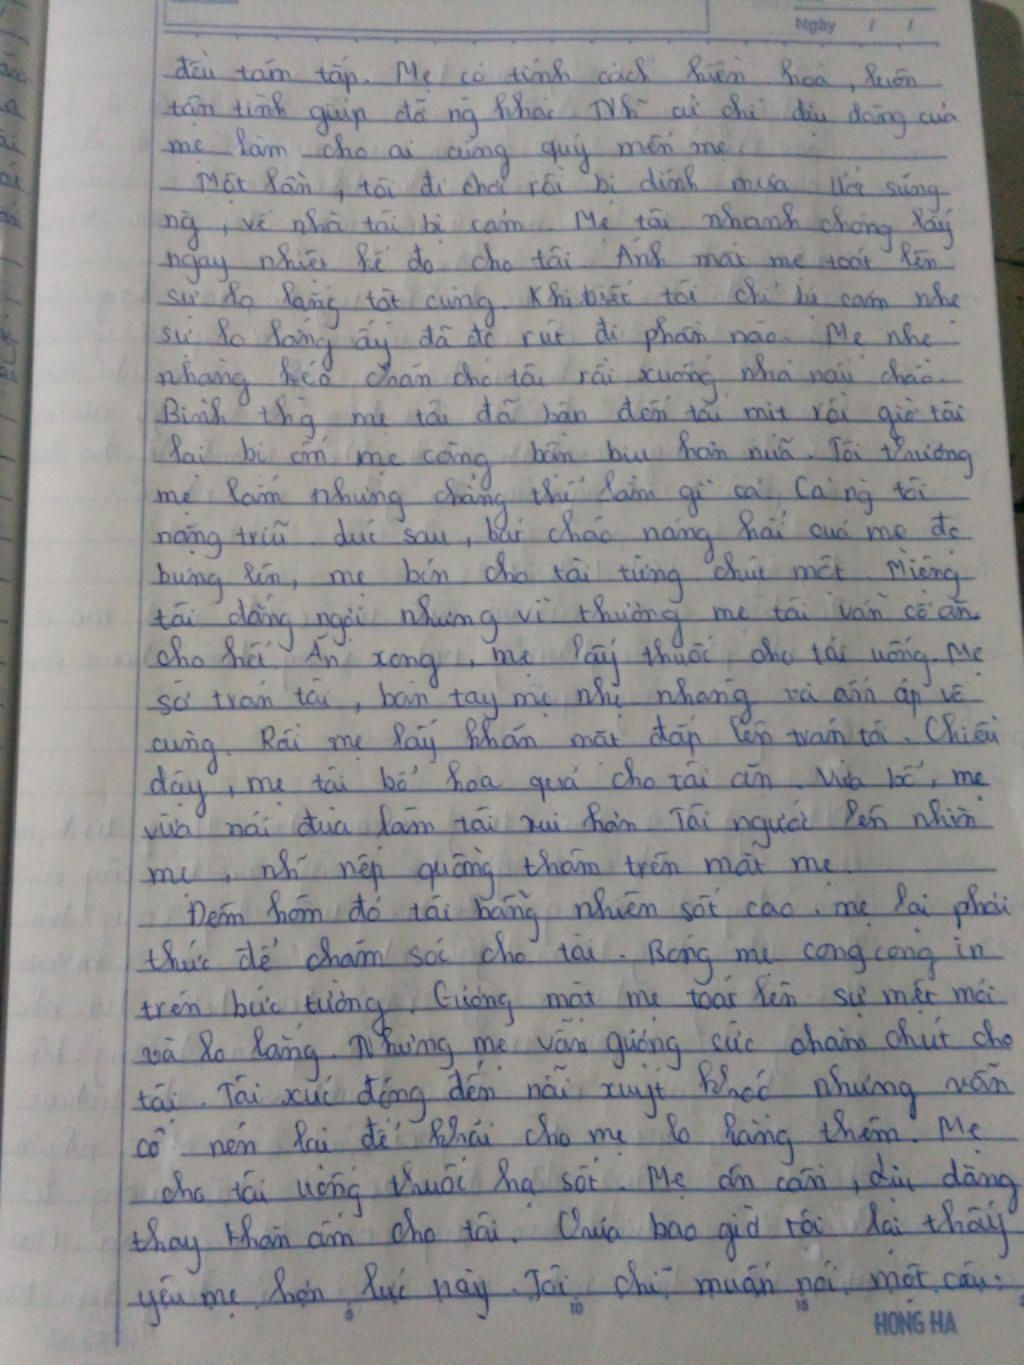 Ngày / /
đều tăm tắp. Mẹ có tính cách hiền hoà, luôn
tận tình giúp đỡ ng khác. Nh~ cử chỉ dịu dàng của
mẹ làm cho ai cũng quý mến mẹ.
Một lần, tôi đi chơi rồi bị dính mưa. Ướt sũng
ng, về nhà tôi bị cảm. Mẹ tôi nhanh chóng lấy
ngay nhiệt kế đo cho tôi. Ánh mắt mẹ toát lên
sự lo lắng tột cùng. Khi biết tôi chỉ bị cảm nhẹ
sự lo lắng ấy đã đc rút đi phần nào. Mẹ nhẹ
nhàng kéo chăn cho tôi rồi xuống nhà nấu cháo.
Bình thg mẹ tôi đã bận đến tối mịt rồi giờ tôi
lại bị ốm mẹ càng bận bịu hơn nữa. Tôi thương
mẹ lắm nhưng chẳng thể làm gì cả. Cả ng tôi
nặng trĩu. Lúc sau, bát cháo nóng hổi của mẹ đc
bưng lên, mẹ bón cho tôi từng chút một. Miệng
tôi đắng ngòi nhưng vì thương mẹ tôi vẫn cố ăn
cho hết. Ăn xong, mẹ lấy thuốc cho tôi uống. Mẹ
sờ trán tôi, bàn tay mẹ nhẹ nhàng và ấm áp vô
cùng. Rồi mẹ lấy khăn mát đắp lên trán tôi. Chiều
dậy, mẹ tôi bổ hoa quả cho tôi ăn. Vừa bổ, mẹ
vừa nói đùa làm tôi vui hơn. Tôi ngước lên nhìn
mẹ, nh~ nếp quầng thâm trên mắt mẹ.
Đêm hôm đó tôi bỗng nhiên sốt cao, mẹ lại phải
thức để chăm sóc cho tôi. Bóng mẹ cong cong in
trên bức tường. Gương mặt mẹ toát lên sự mệt mỏi
và lo lắng. Nhưng mẹ vẫn gượng sức chăm chút cho
tôi. Tôi xúc động đến nỗi xuýt khóc nhưng vẫn
cố nén lại để khỏi cho mẹ lo hàng thêm. Mẹ
cho tôi uống thuốc hạ sốt. Mẹ ân cần, dịu dàng
thay khăn ấm cho tôi. Chưa bao giờ tôi lại thấy
yêu mẹ hơn lúc này. Tôi chỉ muốn nói một câu:
5 10 15
HONG HA